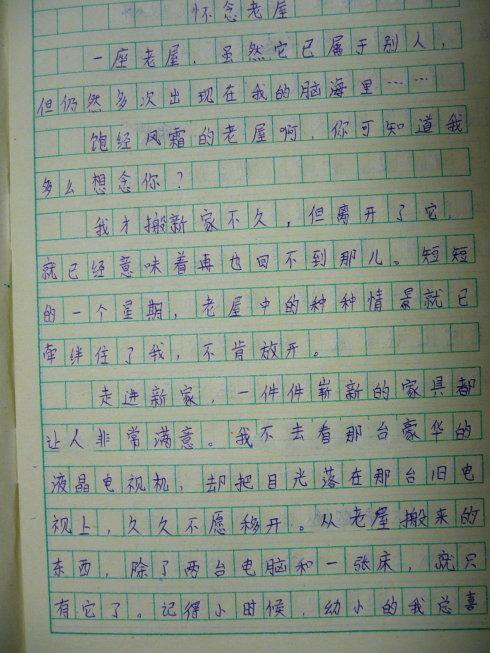 怀念老屋
一座老屋，虽然它已属于别人，
但仍然多次出现在我的脑海里……
饱经风霜的老屋啊，你可知道我
多么想念你？
我才搬新家不久，但离开了它，
就已经意味着再也回不到那儿。短短
的一个星期，老屋中的种种情景就已
牵绊住了我，不肯放开。
走进新家，一件件崭新的家具都
让人非常满意。我不去看那台豪华的
液晶电视机，却把目光落在那台旧电
视上，久久不愿移开。从老屋搬来的
东西，除了两台电脑和一张床，就只
有它了。记得小时候，幼小的我总喜